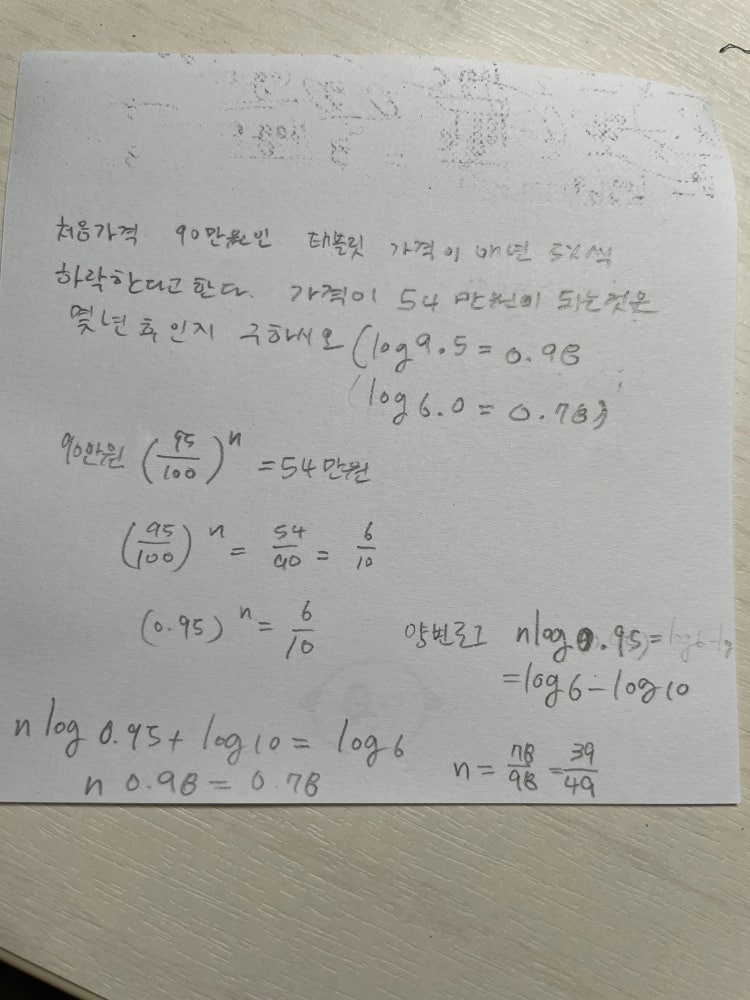 처음가격 90만원인 태블릿 가격이 매년 5%씩
하락한다고한다. 가격이 54만원이 되는것은
몇년 후인지 구하시오 (log9.5=0.98
(log6.0=0.78)
90만원 (95/100)^n = 54만원
(95/100)^n = 54/90 = 6/10
(0.95)^n = 6/10
양변로그 nlog0.95=
=log6-log10
n log 0.95+ log10 = log6
n 0.98 = 0.78
n = 78/98 = 39/49